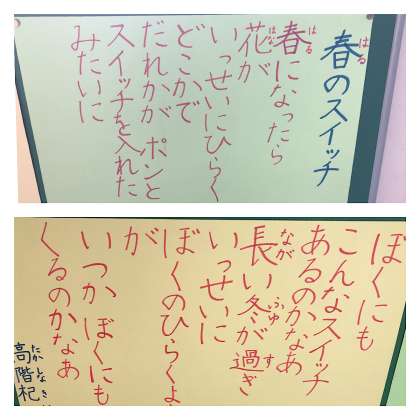 はる
春のスイッチ
はる
春になったら
はな
花が
いっせいにひらく
どこかで
だれかが ポンと
スイッチを入れた
みたいに
ぼくにも
こんなスイッチ
あるのかなあ
なが ふゆ す
長い冬が過ぎ
いっせいに
ぼくのひらくよ
が
いつか ぼくにも
くるのかなあ
たかしなき
高階杞